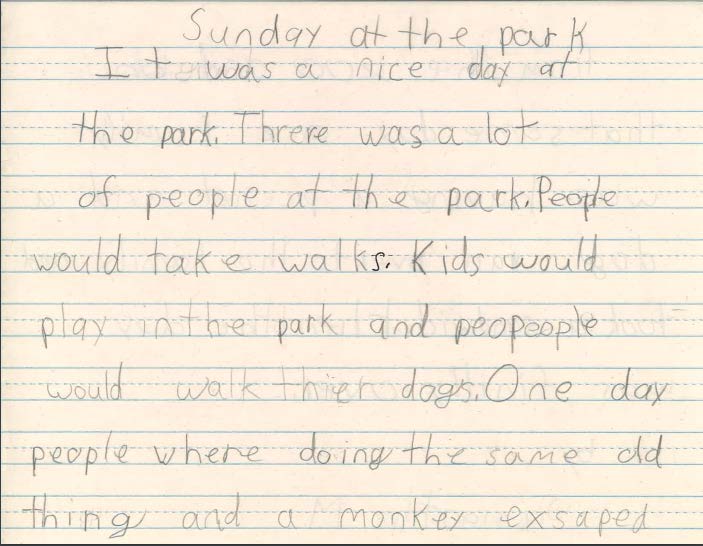 Sunday at the park
It was a nice day at
the park. Threre was a lot
of people at the park. People
would take walks. Kids would
play in the park and peopeople
would walk thier dogs. One day
people where doing the same old
thing and a monkey exsaped